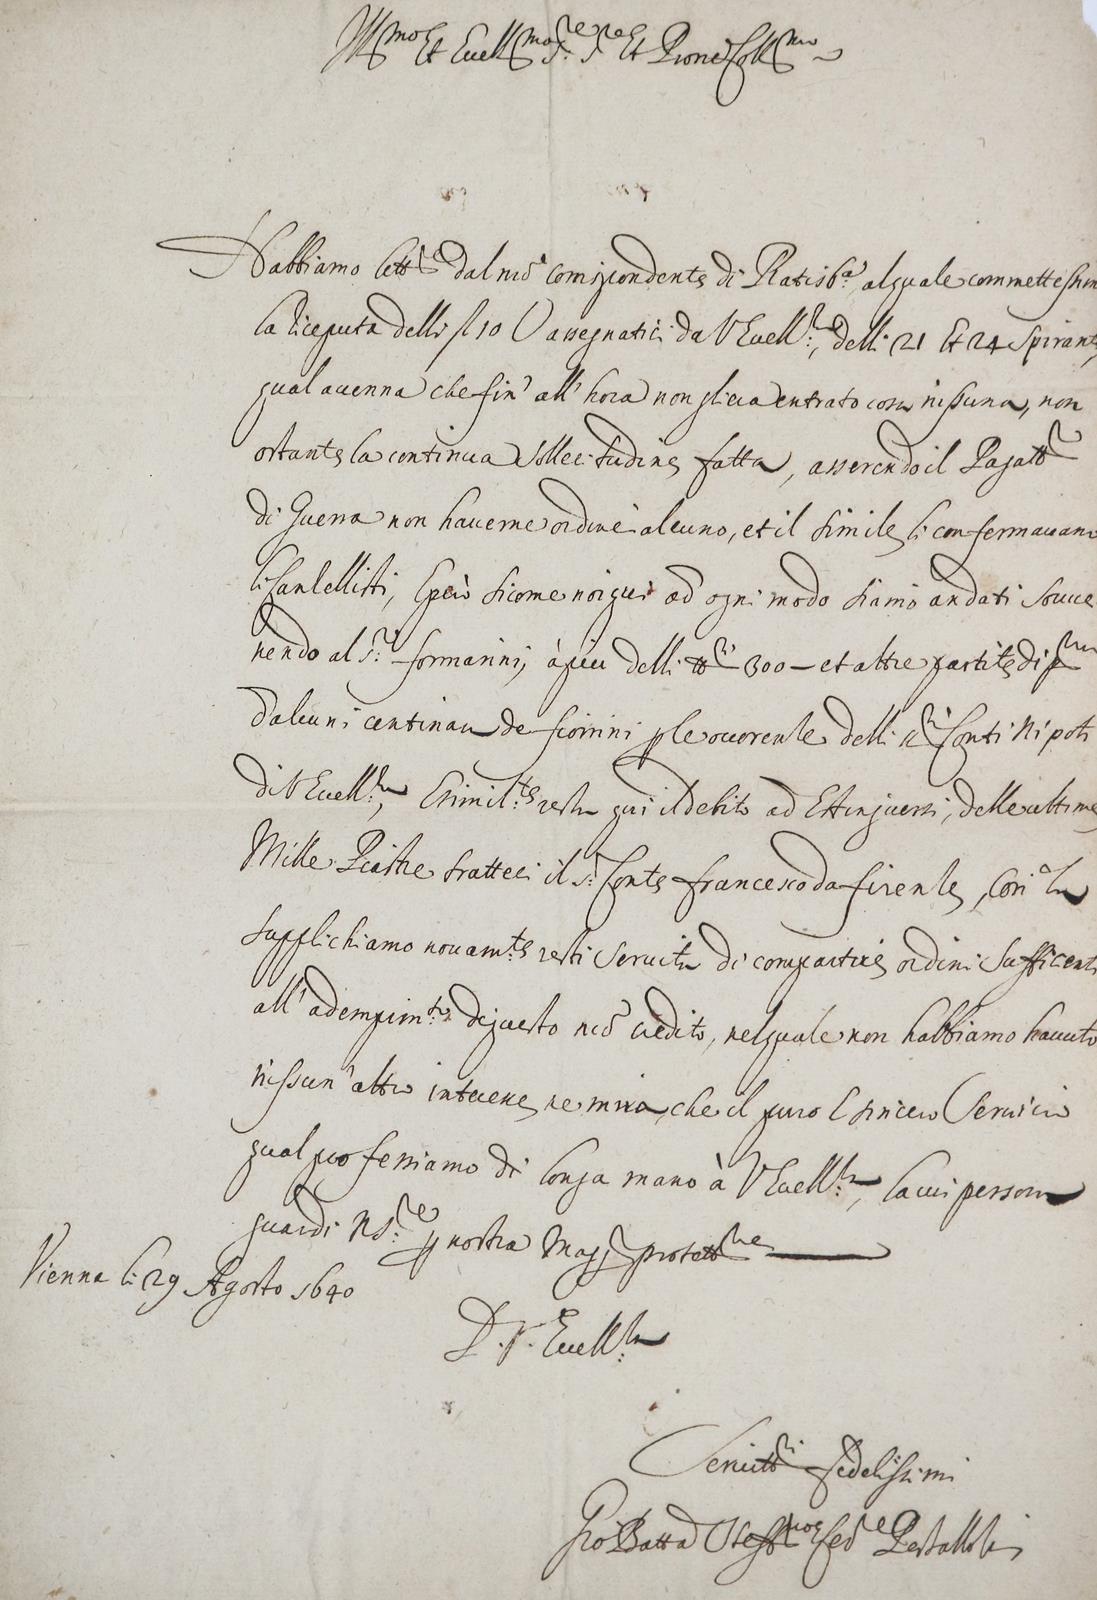 Ill.mo et Eccell.mo S.re S.re et Prone Coll.mo
Habbiamo lett.e dal nrõ corrispondente di Ratisb.a, al quale commettessim
la riceputa delli fl 10 assegnatici da V Eccell.za, delli 21 et 24 spirante,
qual accenna che fin' all' hora non gli era entrato cosa nissuna, non
ostante la continua sollecitudine fatta, asserendo il Pagatt.re
di Guerra non haverne ordine alcuno, et il simile li confermavano
li Canlellisti, però sicome noi qui ad ogni modo siamo andati sovve
nendo al S.r formarini, à piu delli 300 – et altre partite di
d'alcuni centinara de fiorini ple occorenle delli Conti Nipoti
di V Eccell.za, e simil.te resta qui il debito ad Estinguersi, delle ultime
Mille Piastre tratteci il S.r Conte francesco da firenle, Con
supplichiamo novam.te resti servita di compartire ordini sufficenti
all' adempim.to di questo nrõ credito, nel quale non habbiamo havuto
nissun' altro interere, ne mira, che il puro e sincero Servicio
qual professiamo di longa mano à V Eccell.za, la cui persona
guardi N S.re p nostra Magg.r protett.ne
Vienna li 29 Agosto 1640
D. V. Eccell.za
Servitt.ri fedelissimi
Gio Batta